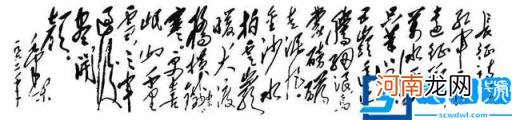 长征诗
红军
远征
万水千
只等闲
五岭逶迤
腾细浪乌
蒙磅礴
走泥丸
金沙水
拍云崖
暖大渡
桥横铁索
寒更喜
岷山千里
雪三军
过后
尽开
颜
毛泽东
一九六二年
河南龙网
scwdwl.com